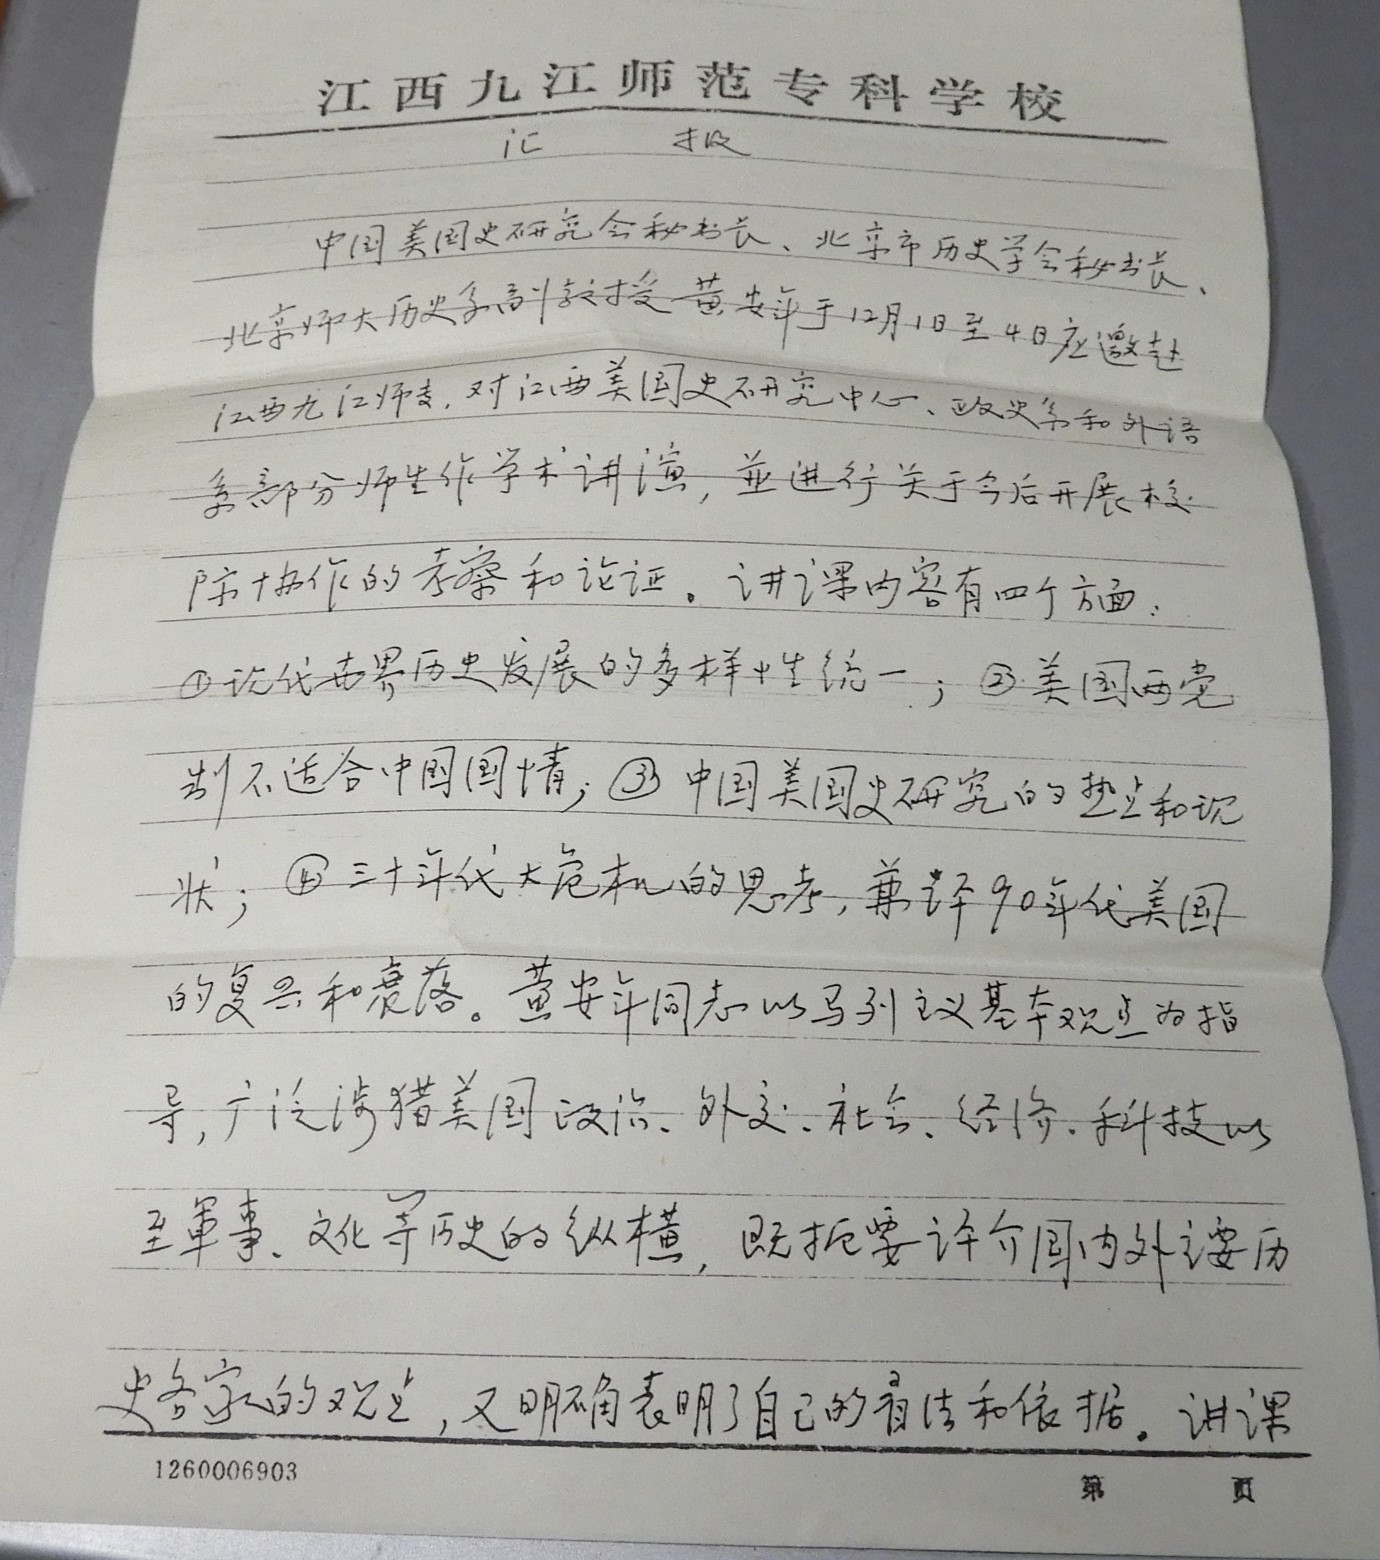 江西九江师范专科学校
汇 报
中国美国史研究会秘书长、北京市历史学会秘书长、
北京师大历史系副教授黄安年于12月1日至4日应邀赴
江西九江师专，对江西美国史研究中心、政史系和外语
系部分师生作学术讲演，並进行关于今后开展校
际协作的考察和论证。讲课内容有四个方面：
①现代世界历史发展的多样性统一；②美国两党
制不适合中国国情；③中国美国史研究的热点和现
状；④三十年代大危机的思考，兼评90年代美国
的复兴和衰落。黄安年同志以马列主义基本观点为指
导，广泛涉猎美国政治、外交、社会、经济、科技以
至軍事、文化等历史的纵横，既扼要评介国内外主要历
史各家的观点，又明确表明了自己的看法和依据。讲课
1260006903
第 页